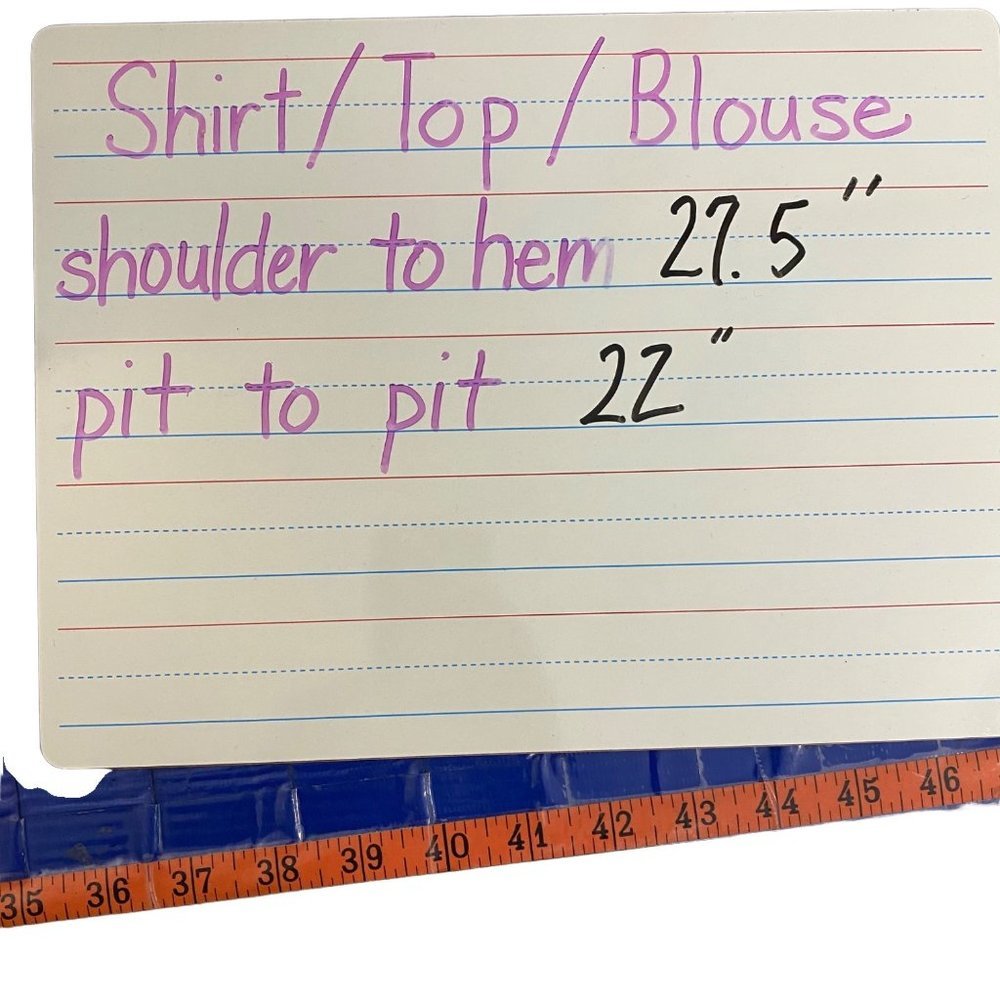 Shirt/Top/Blouse
shoulder to hem 27.5"
pit to pit 22"
35 36 37 38 39 40 41 42 43 44 45 46